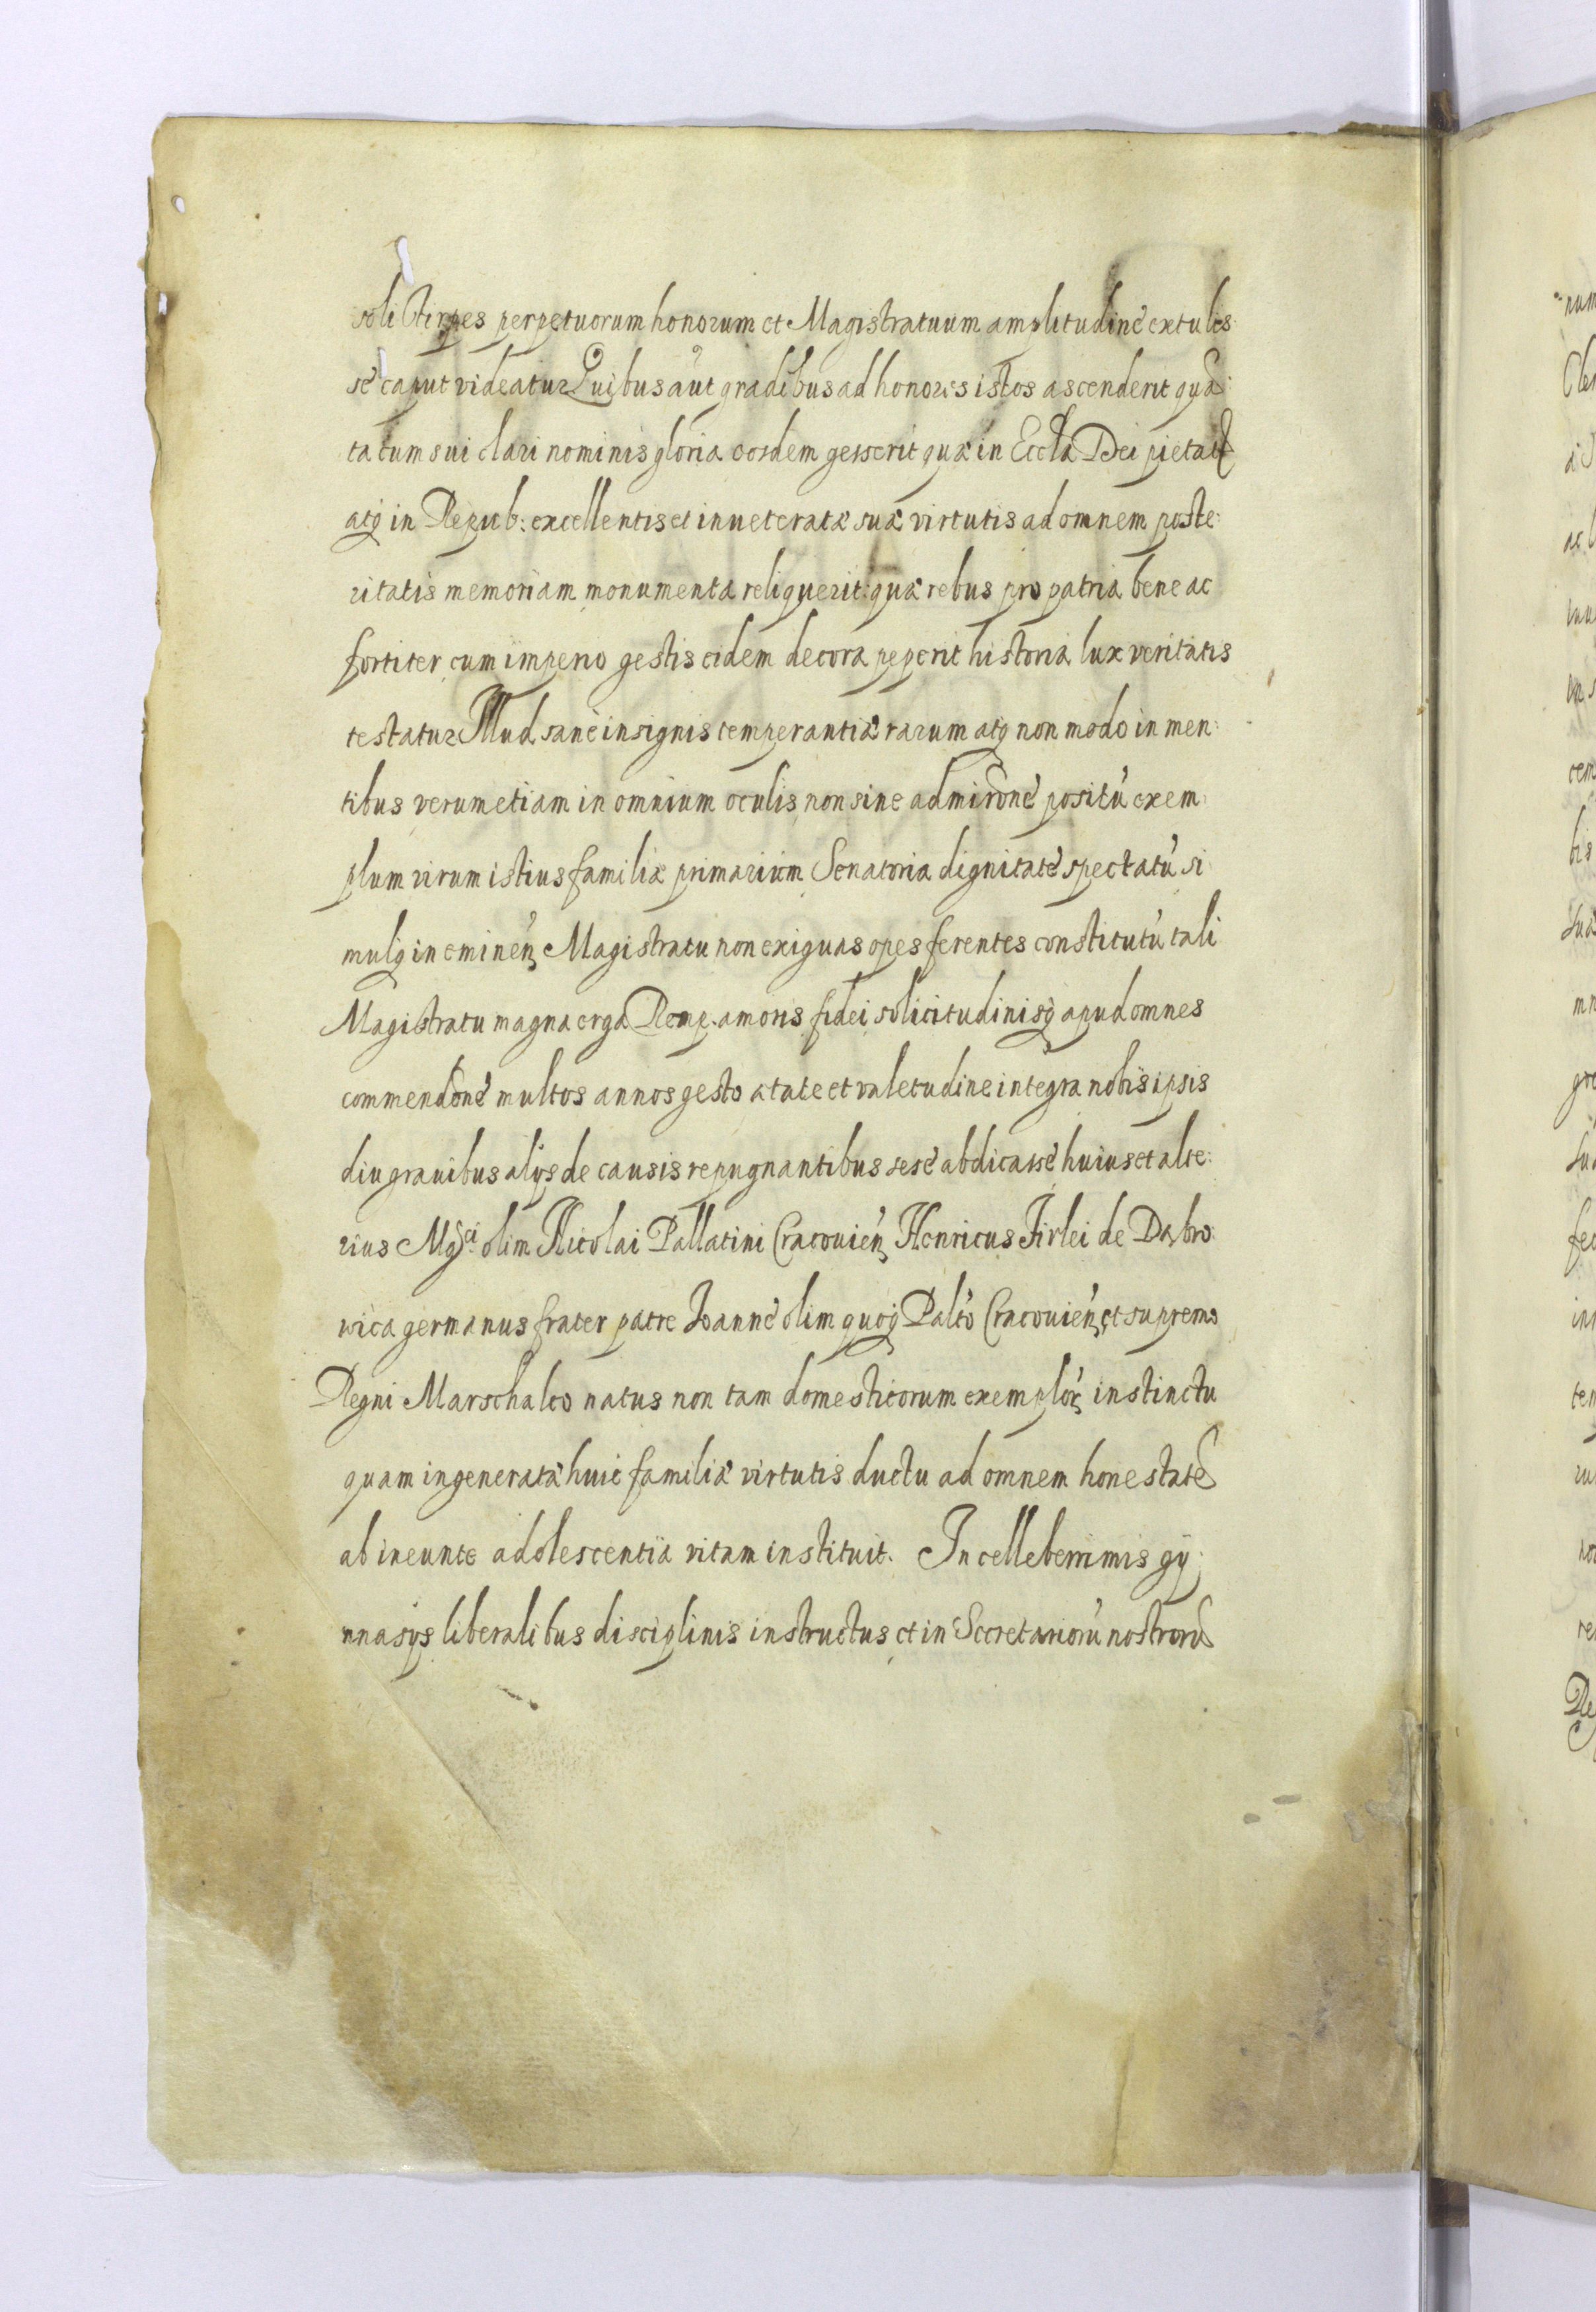 soli Stirpes perpetuorum honorum et Magistratuum amplitudinè extulis:
sè caput videatur Quibus aũt gradibus ad honores istos ascenderit quã:
ta cum sui clari nominis gloria eosdem gesserit quæ in Eccłа Dei pietatis
atq in Repub: excellentis et inueteratæ suæ virtutis ad omnem poste:
ritatis memoriam monumenta reliquerit: quæ rebus pro patria bene ac
fortiter cum imperio gestis eidem decora pepererit historia lux veritatis
testatur Illud sanè insignis temperantiæ rarum atq non modo in men:
tibus verum etiam in omnium oculis non sine admirõne positũ exem:
plum virum istius familiæ primarium Senatoria dignitate spectatũ si:
mulq in eminen̄ Magistratu non exiguas opes ferentes constitutũ tali
Magistratu magna erga Remp. amoris fidei solicitudinisq apud omnes
commendõne multos annos gesto ætate et valetudine integra nobis ipsis
diu grauibus alijs de causis repugnantibus sese abdicasse huius et alte:
rius Mgci olim Nicolai Pallatini Cracouien̄ Henricus Firlei de Dąbro
wica germanus frater patre Joanne olim quoq Palto Cracouien̄ et supremo
Regni Marschalco natus non tam domesticorum exemplor̄ instinctu
quam ingeneratæ huic familiæ virtutis ductu ad omnem honestatẽ
ab ineunte adolescentia vitam instituit. In celleberrimis gy:
mnasijs liberalibus disciplinis instructus et in Secretariorũ nostrorũ